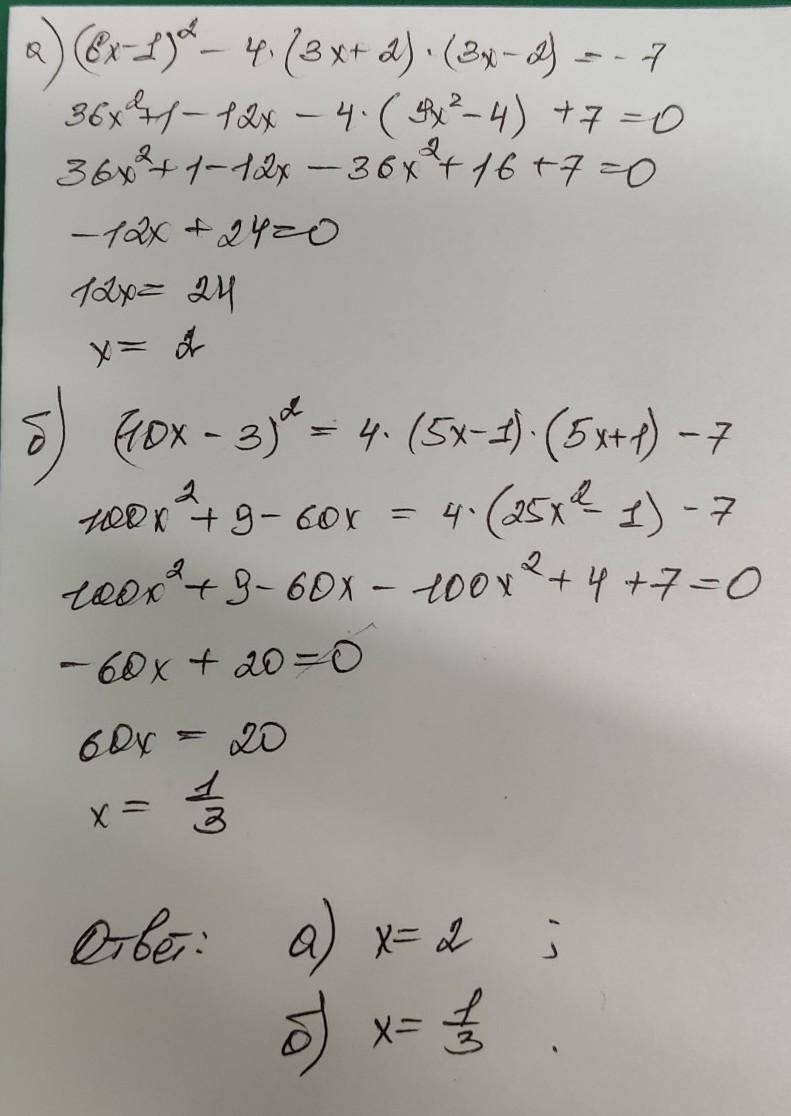 а) (6x-1)² - 4·(3x+2)·(3x-2) = -7
36x²+1-12x-4·(9x²-4)+7=0
36x²+1-12x-36x²+16+7=0
-12x+24=0
12x=24
x=2
б) (10x-3)² = 4·(5x-1)·(5x+1)-7
100x²+9-60x = 4·(25x²-1)-7
100x²+9-60x-100x²+4+7=0
-60x+20=0
60x=20
x=1/3
Ответ: а) x=2 ;
б) x=1/3 .